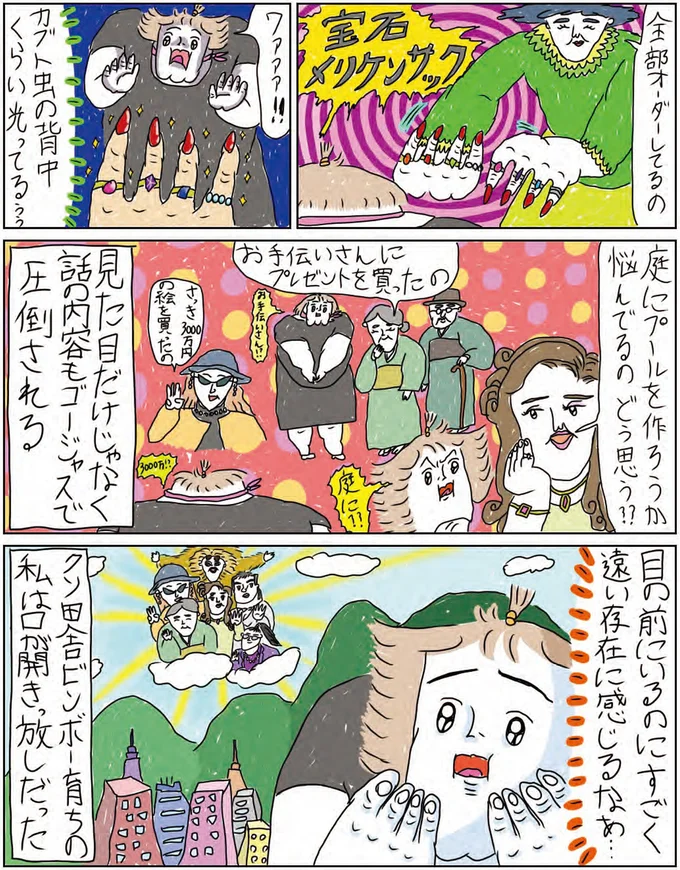 全部オーダーしてるの
宝石
メリケンサック
ワァァァ!!
カブト虫の背中
くらい光ってるっっ
庭にプールを作ろうか
悩んでるの どう思う??
お手伝いさんに
プレゼントを買ったの
お手伝いさん!?
さっき3000万円
の絵を買ったの
庭に!?
3000万!?
見た目だけじゃなく
話の内容もゴージャスで
圧倒される
目の前にいるのにすごく
遠い存在に感じるなぁ…
クソ田舎ビンボー育ちの
私は口が開きっ放しだった